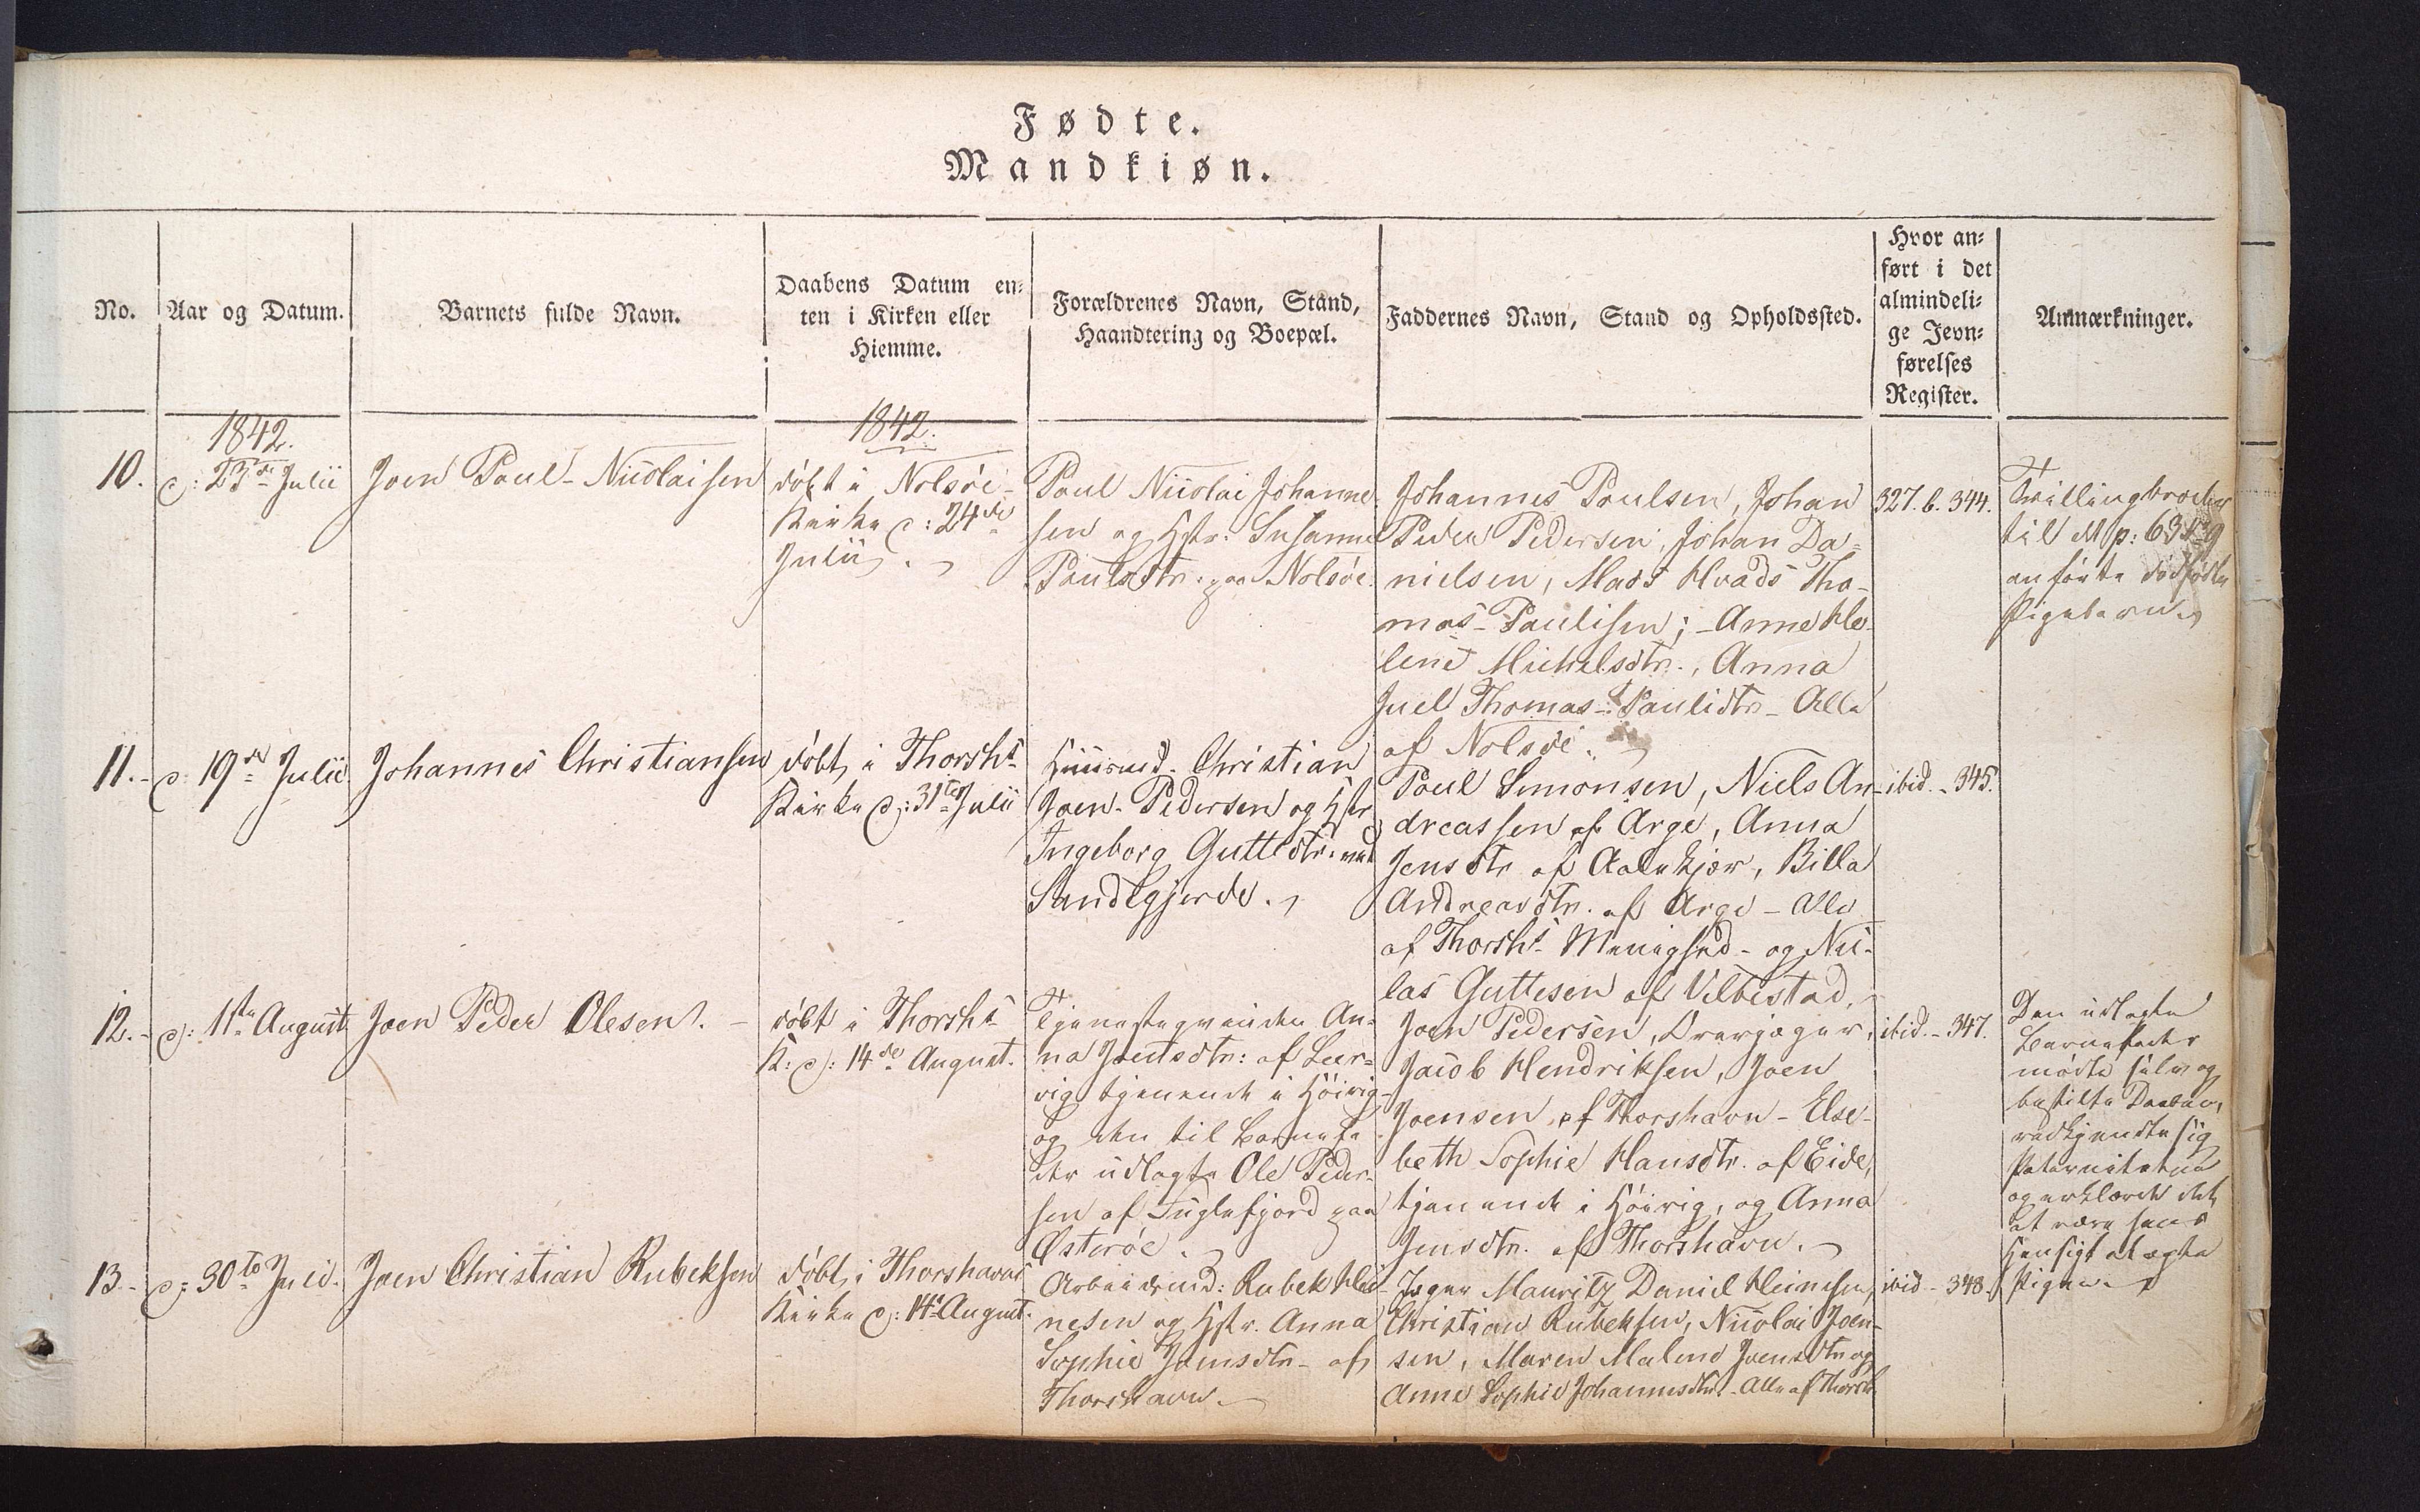 Fødte.
Mandkiøn.
No.
Aar og Datum.
Barnets fulde Navn.
Daabens Datum en-
ten i Kirken eller
Hiemme.
Forældrenes Navn, Stand,
Haandtering og Boepæl.
Faddernes Navn, Stand og Opholdssted.
Hvor an-
ført i det
almindeli-
ge Jevn-
førelses
Register.
Anmærkninger.
1842.
1842.
10.
d: 23de Julii
Joen Poul-Nicolaisen
døbt i Nolsöe
Kirke d: 24de
Julii.
Poul Nicolai Johanne-
sen og Hstr: Susanne
Poulsdtr: paa Nolsöe
Johannes Poulsen, Johan
Peder Pedersen, Johan Da-
nielsen, Mads Hvads Tho-
mas-Paulisen; - Anne He-
lene Michelsdtr., Anna
Juel Thomas-Paulidtr - Alle
af Nolsöe.
327. b. 344.
Tvillingbroder
til det p: 63
anførte dødfødte
Pigebarn
11.-
d: 19de Julii
Johannes Christiansen
døbt i Thorshs
Kirke d: 31te Julii
Huusmd. Christian
Joen-Pedersen og Hstr
Ingeborg Guttesdtr: ved
Sandegjerde.
Poul Simonsen, Niels An-
dreassen af Arge, Anna
Jensdtr af Aalekjær, Billa
Andreasdtr. af Arge - Alle
af Thorshs Menighed - og Nic-
las Guttesen af Velbestad.
ibid. - 345.
12.-
d: 1ste August
Joen Peder Olesen. -
døbt i Thorshs
K: d: 14de August.
Tjenestequinden An-
na Joensdtr: af Leer-
vig tjenende i Höivig
og den til Barnefa-
der udlagte Ole Peder-
sen af Fuglefjord paa
Østeröe.
Joen Pedersen,
Jacob Hendriksen, Joen
Joensen af Thorshavn - Else-
beth Sophie Hansdtr. af Eide,
tjenende i Höivig, og Anna
Jensdtr. af Thorshavn.
ibid. - 347.
Den udlagte
Barnefader
mødte selv og
bestilte Daaben,
vedkjendte sig
Paterniteten
og erklærede det
at være hans
Hensigt at ægte
Pigen.
13.-
d: 30te Juli.
Joen Christian Rubeksen
døbt i Thorshavns
Kirke d: 14de August.
Arbeidsmd: Rubek Hei-
nesen og Hstr. Anna
Sophie Joensdtr - af
Thorshavn. -
Jæger Mauritz Daniel Heinesen,
Christian Rubeksen, Nicolai Joen-
sen, Maren Malene Joensdtr og
Anne Sophie Johannesdtr - Alle af Thorsh
ibid - 348.